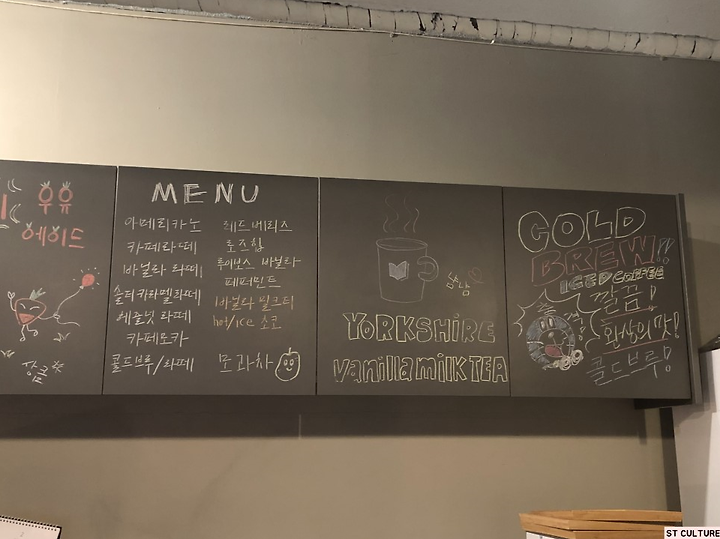 우유
에이드
상큼
MENU
아메리카노
카페라떼
바닐라 라떼
솔티카라멜라떼
헤즐넛 라떼
카페모카
콜드브루/라떼
레드베리즈
로즈힙
루이보스 바닐라
페퍼민트
바닐라 밀크티
hot/ice 초코
모과차
냠냠
YORKSHIRE
Vanilla milk TEA
COLD
BREW!!
ICED COFFEE
깔끔!
환상의 맛!
콜드브루!
ST CULTURE